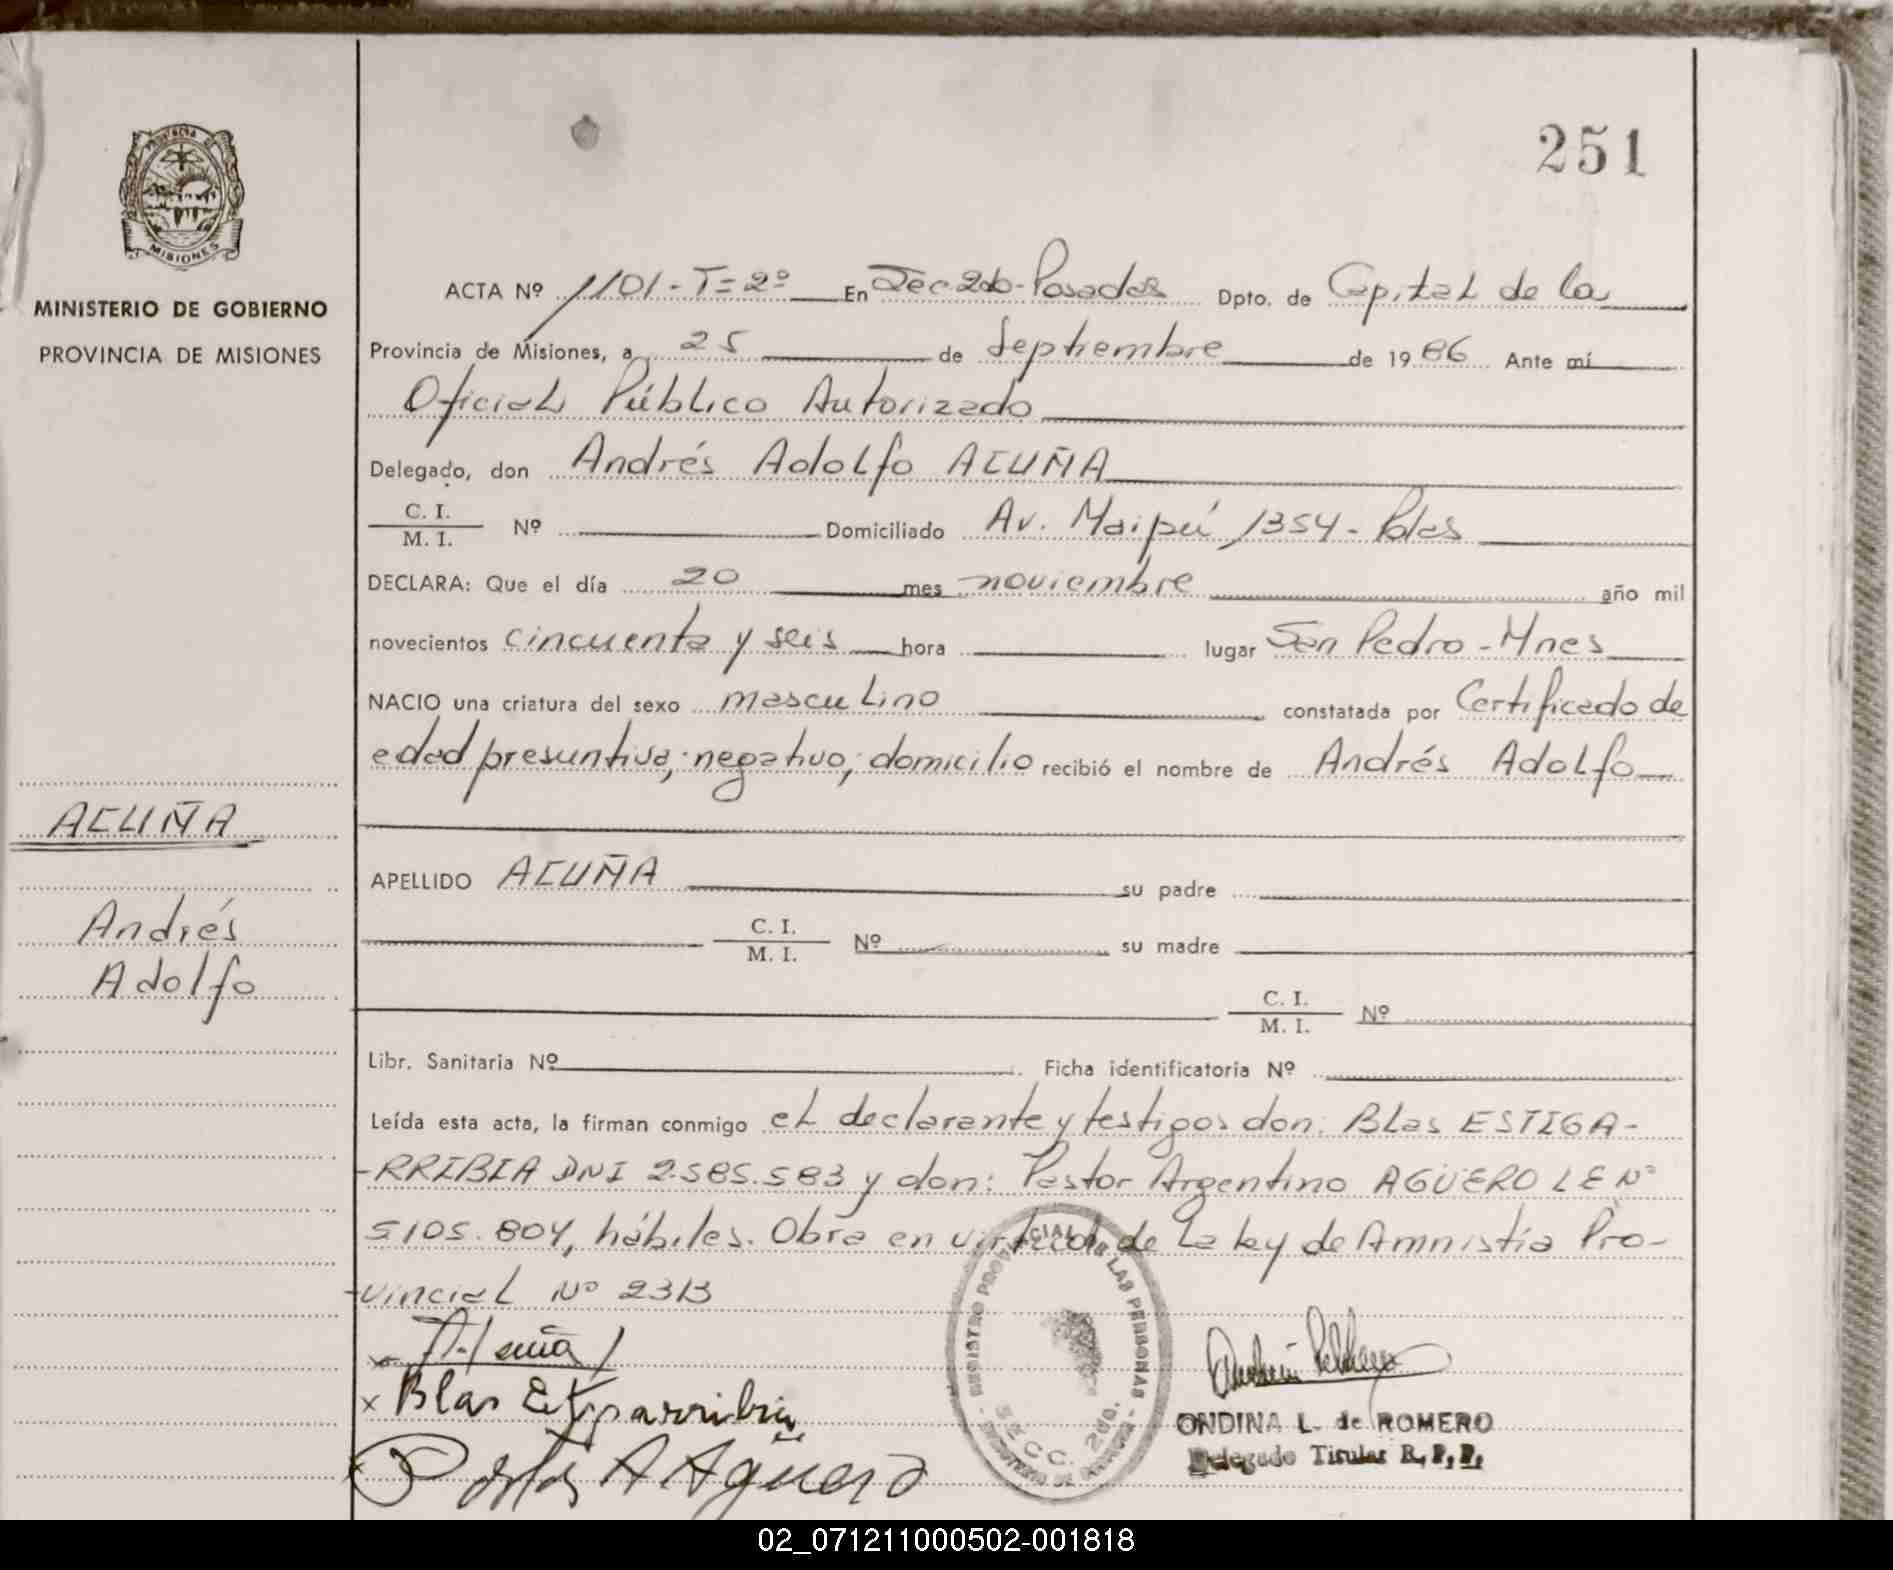 251
PROVINCIA DE
MISIONES
MINISTERIO DE GOBIERNO
PROVINCIA DE MISIONES
ACUÑA
Andrés
Adolfo
ACTA Nº 1101-T=2º En Sec 2da-Posadas Dpto. de Capital de la
Provincia de Misiones, a 25 de Septiembre de 1986 Ante mí
Oficial Público Autorizado
Delegado, don Andrés Adolfo ACUÑA
C. I.
M. I. Nº Domiciliado Av. Maipú 1354 - Pdas
DECLARA: Que el día 20 mes noviembre año mil
novecientos cincuenta y seis hora lugar San Pedro - Mnes
NACIO una criatura del sexo masculino constatada por Certificado de
edad presuntiva; negativo; domicilio recibió el nombre de Andrés Adolfo
APELLIDO ACUÑA su padre
C. I.
M. I. Nº su madre
C. I.
M. I. Nº
Libr. Sanitaria Nº Ficha identificatoria Nº
Leída esta acta, la firman conmigo el declarante y testigos don: Blas ESTIGA-
-RRIBIA DNI 2.585.583 y don: Pastor Argentino AGÜERO LE Nº
5105.804, hábiles. Obra en virtud de la ley de Amnistía Pro-
-vincial Nº 2313
x A Acuña
x Blas Estigarribia
x Pastor A Agüero
REGISTRO PROVINCIAL DE LAS PERSONAS
SECC. 2DA.
MINISTERIO DE GOBIERNO
ONDINA L. de ROMERO
Delegado Titular R.P.P.
02_071211000502-001818